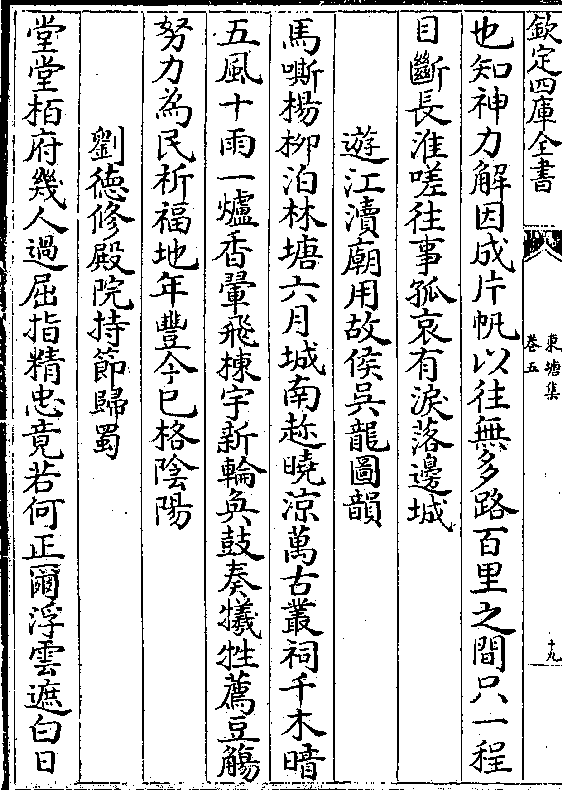 欽定四庫全書
東塘集
卷五
十九
也知神力解因成片帆以往無多路百里之間只一程
目斷長淮嗟往事孤哀有淚落邊城
遊江瀆廟用故侯吳龍圖韻
馬嘶楊柳泊林塘六月城南趂曉涼萬古叢祠千木暗
五風十雨一爐香翬飛棟宇新輪奐鼓奏犧牲薦豆觴
努力為民祈福地年豐今已格陰陽
劉德修殿院持節歸蜀
堂堂栢府幾人過屈指精忠竟若何正爾浮雲遮白日